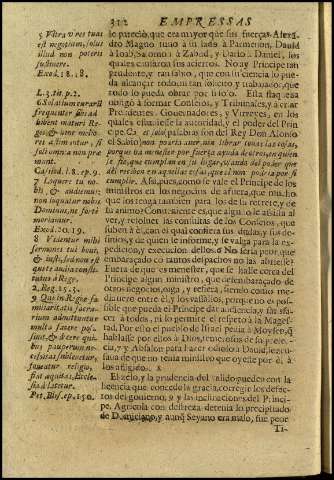 312 EMPRESSAS
5 Vltra vires tuas
est negotium, solus
illud non poteris
sustinere.
Exod. 18. 18.
L. 3. tit. p. 2.
Cassiod. l. 8. ep. 9.
7 Loquere tu nobis, & audiemus;
non loquatur nobis
Dominus, ne forte
moriamur.
Exod. 20. 19.
8 Videntur mihi
sermones tui boni,
& iusti, sed non est
qui te audiat constitutus
à Rege.
2. Reg. 15. 3.
9 Quia in Regis
multa facere possunt,
& dicere quibus
pauperum necessitas
subleuetur,
foueatur religio,
fiat aequitas, Ecclesia
dilatetur.
Pet. Bles. ep. 150.
lo pareciò, que era mayor que sus fuerças. Alexandro
Magno tuuo a su lado à Parmenon, Dauid
à Ioab, Salomon à Zabud, y Dario à Daniel, los
quales causaron sus aciertos. No ay Principe tan
prudente, y tan sabio, que con su ciencia lo pueda
alcançar todo, ni tan solicito, y trabajador, que
todo lo pueda obrar por si solo. Esta flaqueza
obligò à formar Consejos, y Tribunales, y à criar
Presidentes, Gouernadores, y Virreyes, en los
quales estuuiesse la autoridad, y el poder del Principe.
Ca el solo (palabras son del Rey Don Alonso
el Sabio) non podria auer nin librar todas las cosas,
porque ha menester por fuerça ayuda de otros, en quien
se fie, que cumplan en su lugar, vsando del poder que
del reciben en aquellas cosas, que el non podria por si
cumplir. Assi, pues, como se vale el Principe de los
ministros en los negocios de afuera, no es mucho
que los tenga tambien para los de su retrete, y de
su animo. Conueniente es, que alguno le assista al
ver, y resoluer las consultas de los Consejos, que
suben à èl, con el qual confiera sus dudas, y sus designios,
y de quien se informe, y se valga para la expedicion,
y execucion dellos. 6 No seria peor, que
embaraçado con tantos despachos no las abriesse?
Fuera de que es menester, que se halle cerca del
Principe algun ministro, que desembaraçado de
otros negocios, oyga, y refiera, siendo como medianero
entre èl, y los vassallos, porque no es possible
que pueda el Principe dar audiencia, y satisfacer
à todos, ni lo permite el respeto à la Magestad.
Por esto el pueblo de Israel pedia à Moysen, que
hablasse por ellos à Dios, temerosos de su presencia,
7 y Absalon para hazer odioso à Dauid, le acusaua
de que no tenia ministro que oyesse por èl à
los afligidos. 8
El zelo, y la prudencia del valido pueden con la
licencia que concede la gracia, corregir los defectos
del gouierno, 9 y las inclinaciones del Principe.
Agricola con destreza detenia lo precipitado
de Domiciano, y aunq̃ Seyano era malo, fue peor
Ti-